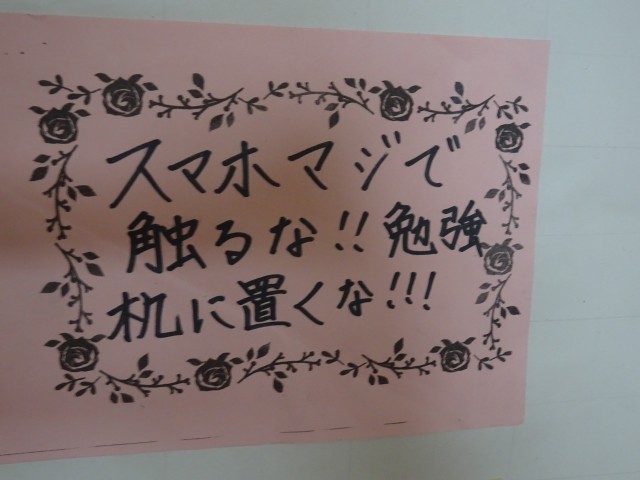 スマホマジで
触るな!! 勉強
机に置くな!!!